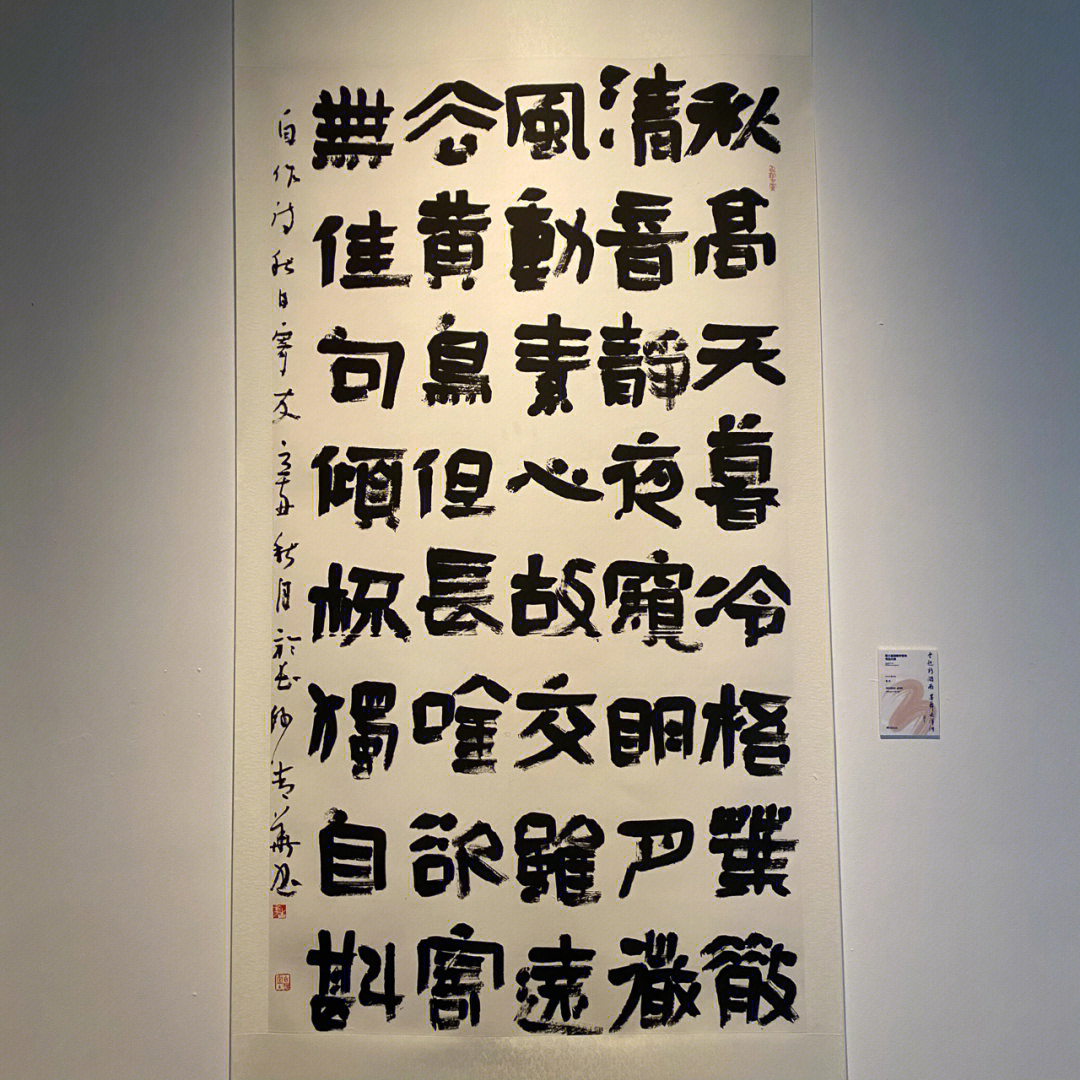 秋高天暮冷梧葉散
清音靜夜窺明月微
風動素心故交雖遠
谷黃鳥但長唫欲寄
無佳句傾杯獨自斟
自作詩秋日寄友辛丑秋月於長沙